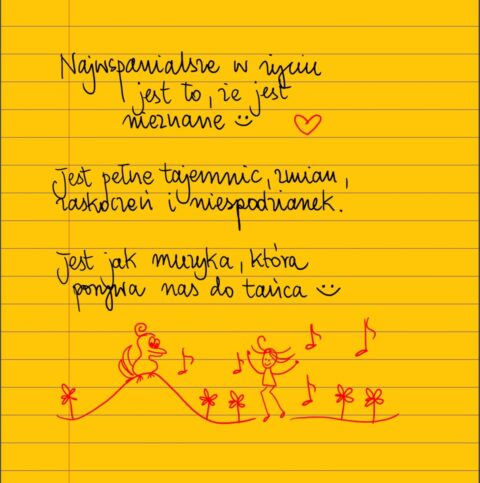 Najwspanialsze w życiu
jest to, że jest
nieznane :)
Jest pełne tajemnic, zmian,
zaskoczeń i niespodzianek.
Jest jak muzyka, która
porywa nas do tańca :)